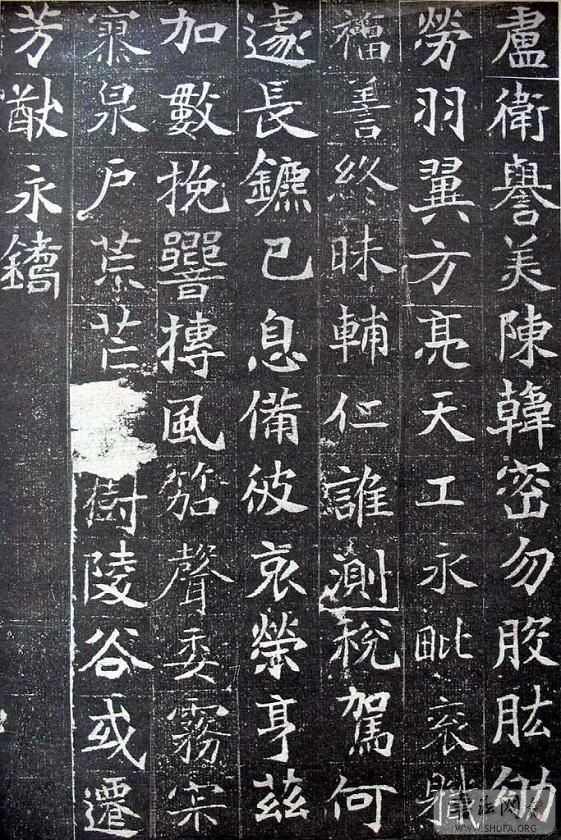 盧衛譽美陳韓密勿股肱劬
勞羽翼方亮天工永毗袞職
福善終昧輔仁誰測稅駕何
遽長鑣已息備彼哀榮亨茲
加數挽響摶風笳聲委霧寂
寞泉戶荒芒樹陵谷或遷
芳猷永鐫
WWW.SHUFA.ORG